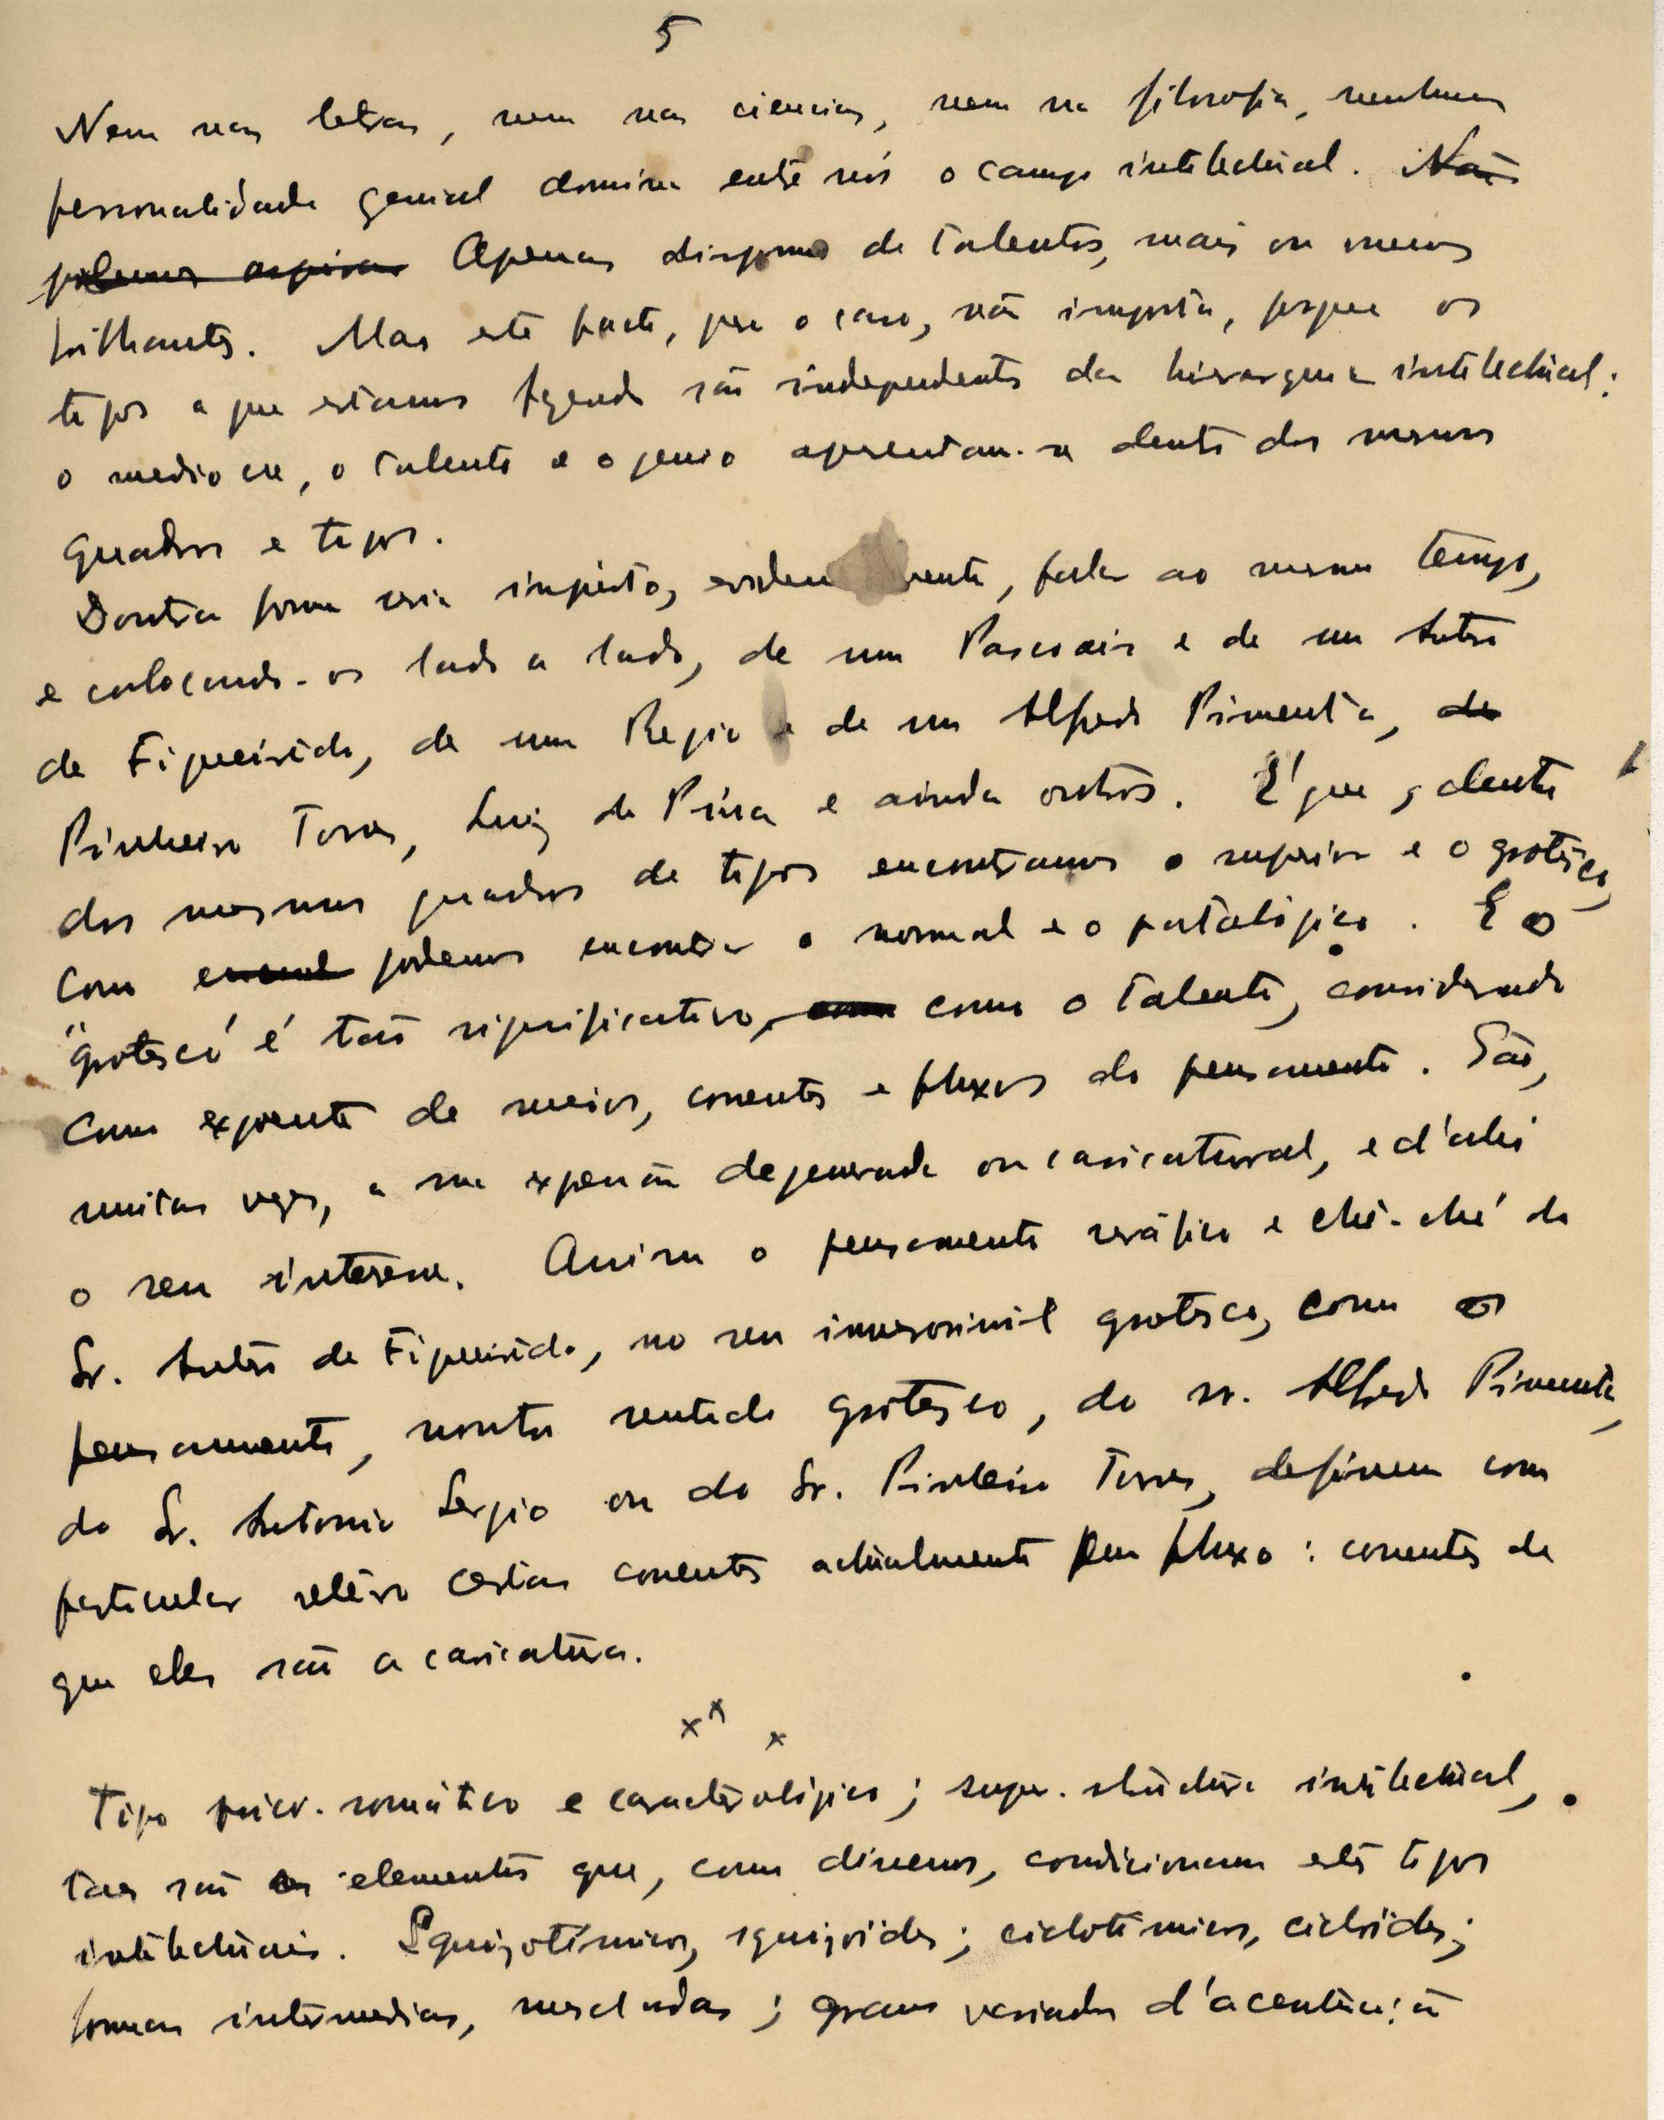 5
Nem nas letras, nem nas ciencias, nem na filosofia, nenhuma
personalidade genial domina entre nós o campo intelectual. Não
podemos aspirar Apenas dispomos de talentos, mais ou menos
brilhantes. Mas este facto, para o caso, não importa, porque os
tipos a que estamos fazendo são independentes da hierarquia intelectual:
o mediocre, o talento e o genio apresentam-se dentro dos mesmos
quadros e tipos.
Doutra forma seria injusto, evidentemente, falar ao mesmo tempo,
e colocando-os lado a lado, de um Pascoais e de um Antero
de Figueiredo, de um Regio e de um Alfredo Pimenta, de
Pinheiro Torres, Luiz de Pina e ainda outros. É que, dentro
dos mesmos quadros de tipos encontramos o superior e o grotesco,
como podemos encontrar o normal e o patológico. E o
"grotesco" é tão significativo, como o talento, considerado
como expoente de meios, correntes e fluxos do pensamento. São,
muitas vezes, a sua expressão degenerada ou caricatural, e d'ahi
o seu interesse. Assim o pensamento seráfico e ché-ché do
Sr. Antero de Figueiredo, no seu inverosimil grotesco, como o
pensamento, noutro sentido grotesco, do sr. Alfredo Pimenta,
do Sr. Antonio Sergio ou do Sr. Pinheiro Torres, definem com
particular relêvo certas correntes actualmente em fluxo: correntes de
que eles são a caricatura.
x x x
Tipo psico-somático e caracterológico; super-estrutura intelectual,
taes são os elementos que, como dissemos, condicionam estes tipos
intelectuais. Esquizotímicos, esquizóides; ciclotímicos, ciclóides;
formas intermedias, mescladas; graus variados d'acentuação